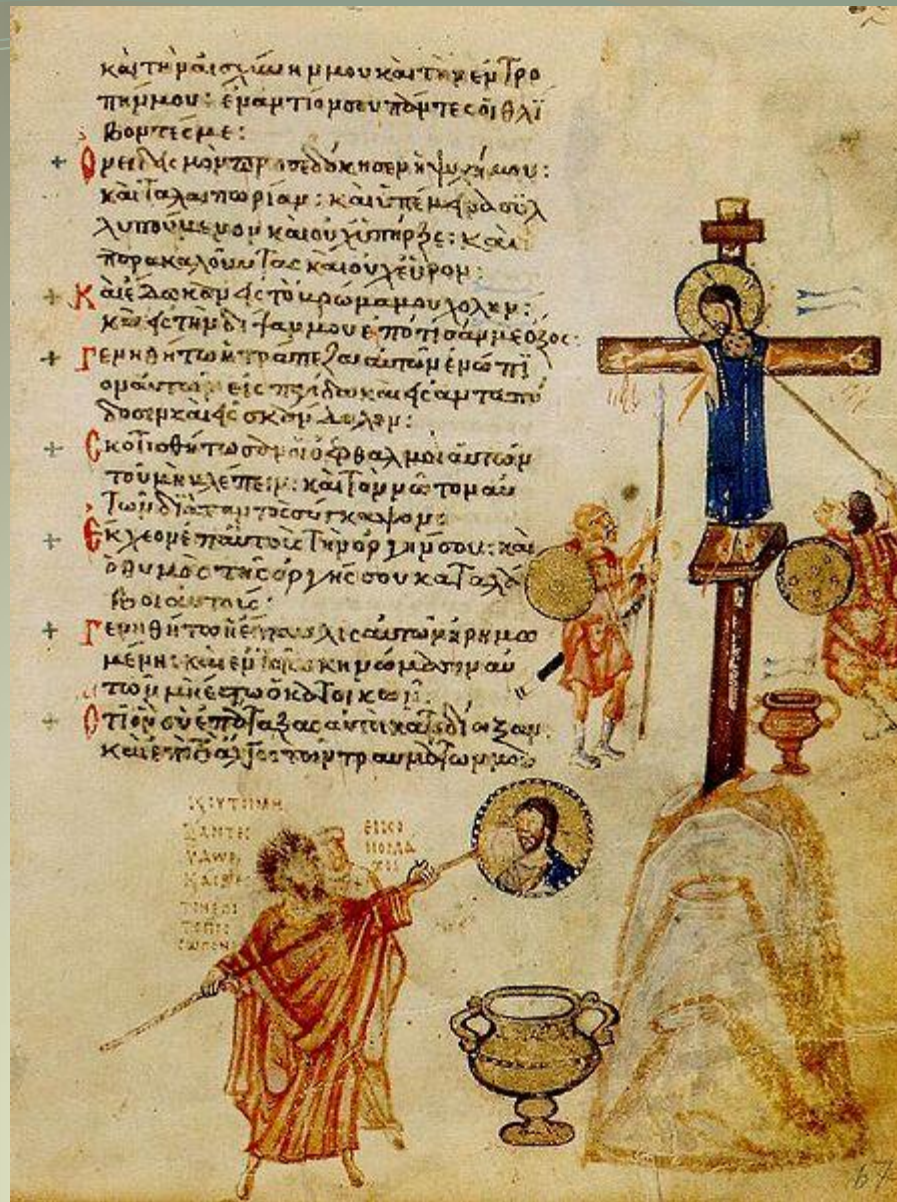 καὶ τὴν αἰσχύνην μου καὶ τὴν ἐντρο
πήν μου: ἐναντίον σου πάντες οἱ θλί
βοντές με:
Ὀνειδισμὸν προσεδόκησεν ἡ ψυχή μου:
καὶ ταλαιπωρίαν: καὶ ὑπέμεινα συλ
λυπούμενον καὶ οὐχ ὑπῆρξε: καὶ
παρακαλοῦντας καὶ οὐχ εὗρον:
Καὶ ἔδωκαν εἰς τὸ βρῶμα μου χολὴν:
καὶ εἰς τὴν δίψαν μου ἐπότισάν με ὄξος:
Γενηθήτω ἡ τράπεζα αὐτῶν ἐνώπι
ον αὐτῶν εἰς παγίδα καὶ εἰς ἀνταπό
δοσιν καὶ εἰς σκάνδαλον:
Σκοτισθήτωσαν οἱ ὀφθαλμοὶ αὐτῶν
τοῦ μὴ βλέπειν: καὶ τὸν νῶτον αὐ
τῶν διὰ παντὸς σύγκαμψον:
Ἔκχεον ἐπ αὐτοὺς τὴν ὀργήν σου: καὶ
ὁ θυμὸς τῆς ὀργῆς σου καταλά
βοι αὐτούς:
Γενηθήτω ἡ ἔπαυλις αὐτῶν ἠρημω
μένη: καὶ ἐν τοῖς σκηνώμασιν αὐ
τῶν μὴ ἔστω ὁ κατοικῶν:
Ὅτι ὃν σὺ ἐπάταξας αὐτοὶ κατεδίωξαν:
καὶ ἐπὶ τὸ ἄλγος τῶν τραυμάτων μου
ΕΙΚΟ
ΝΟΜΑ
ΧΟΙ
67